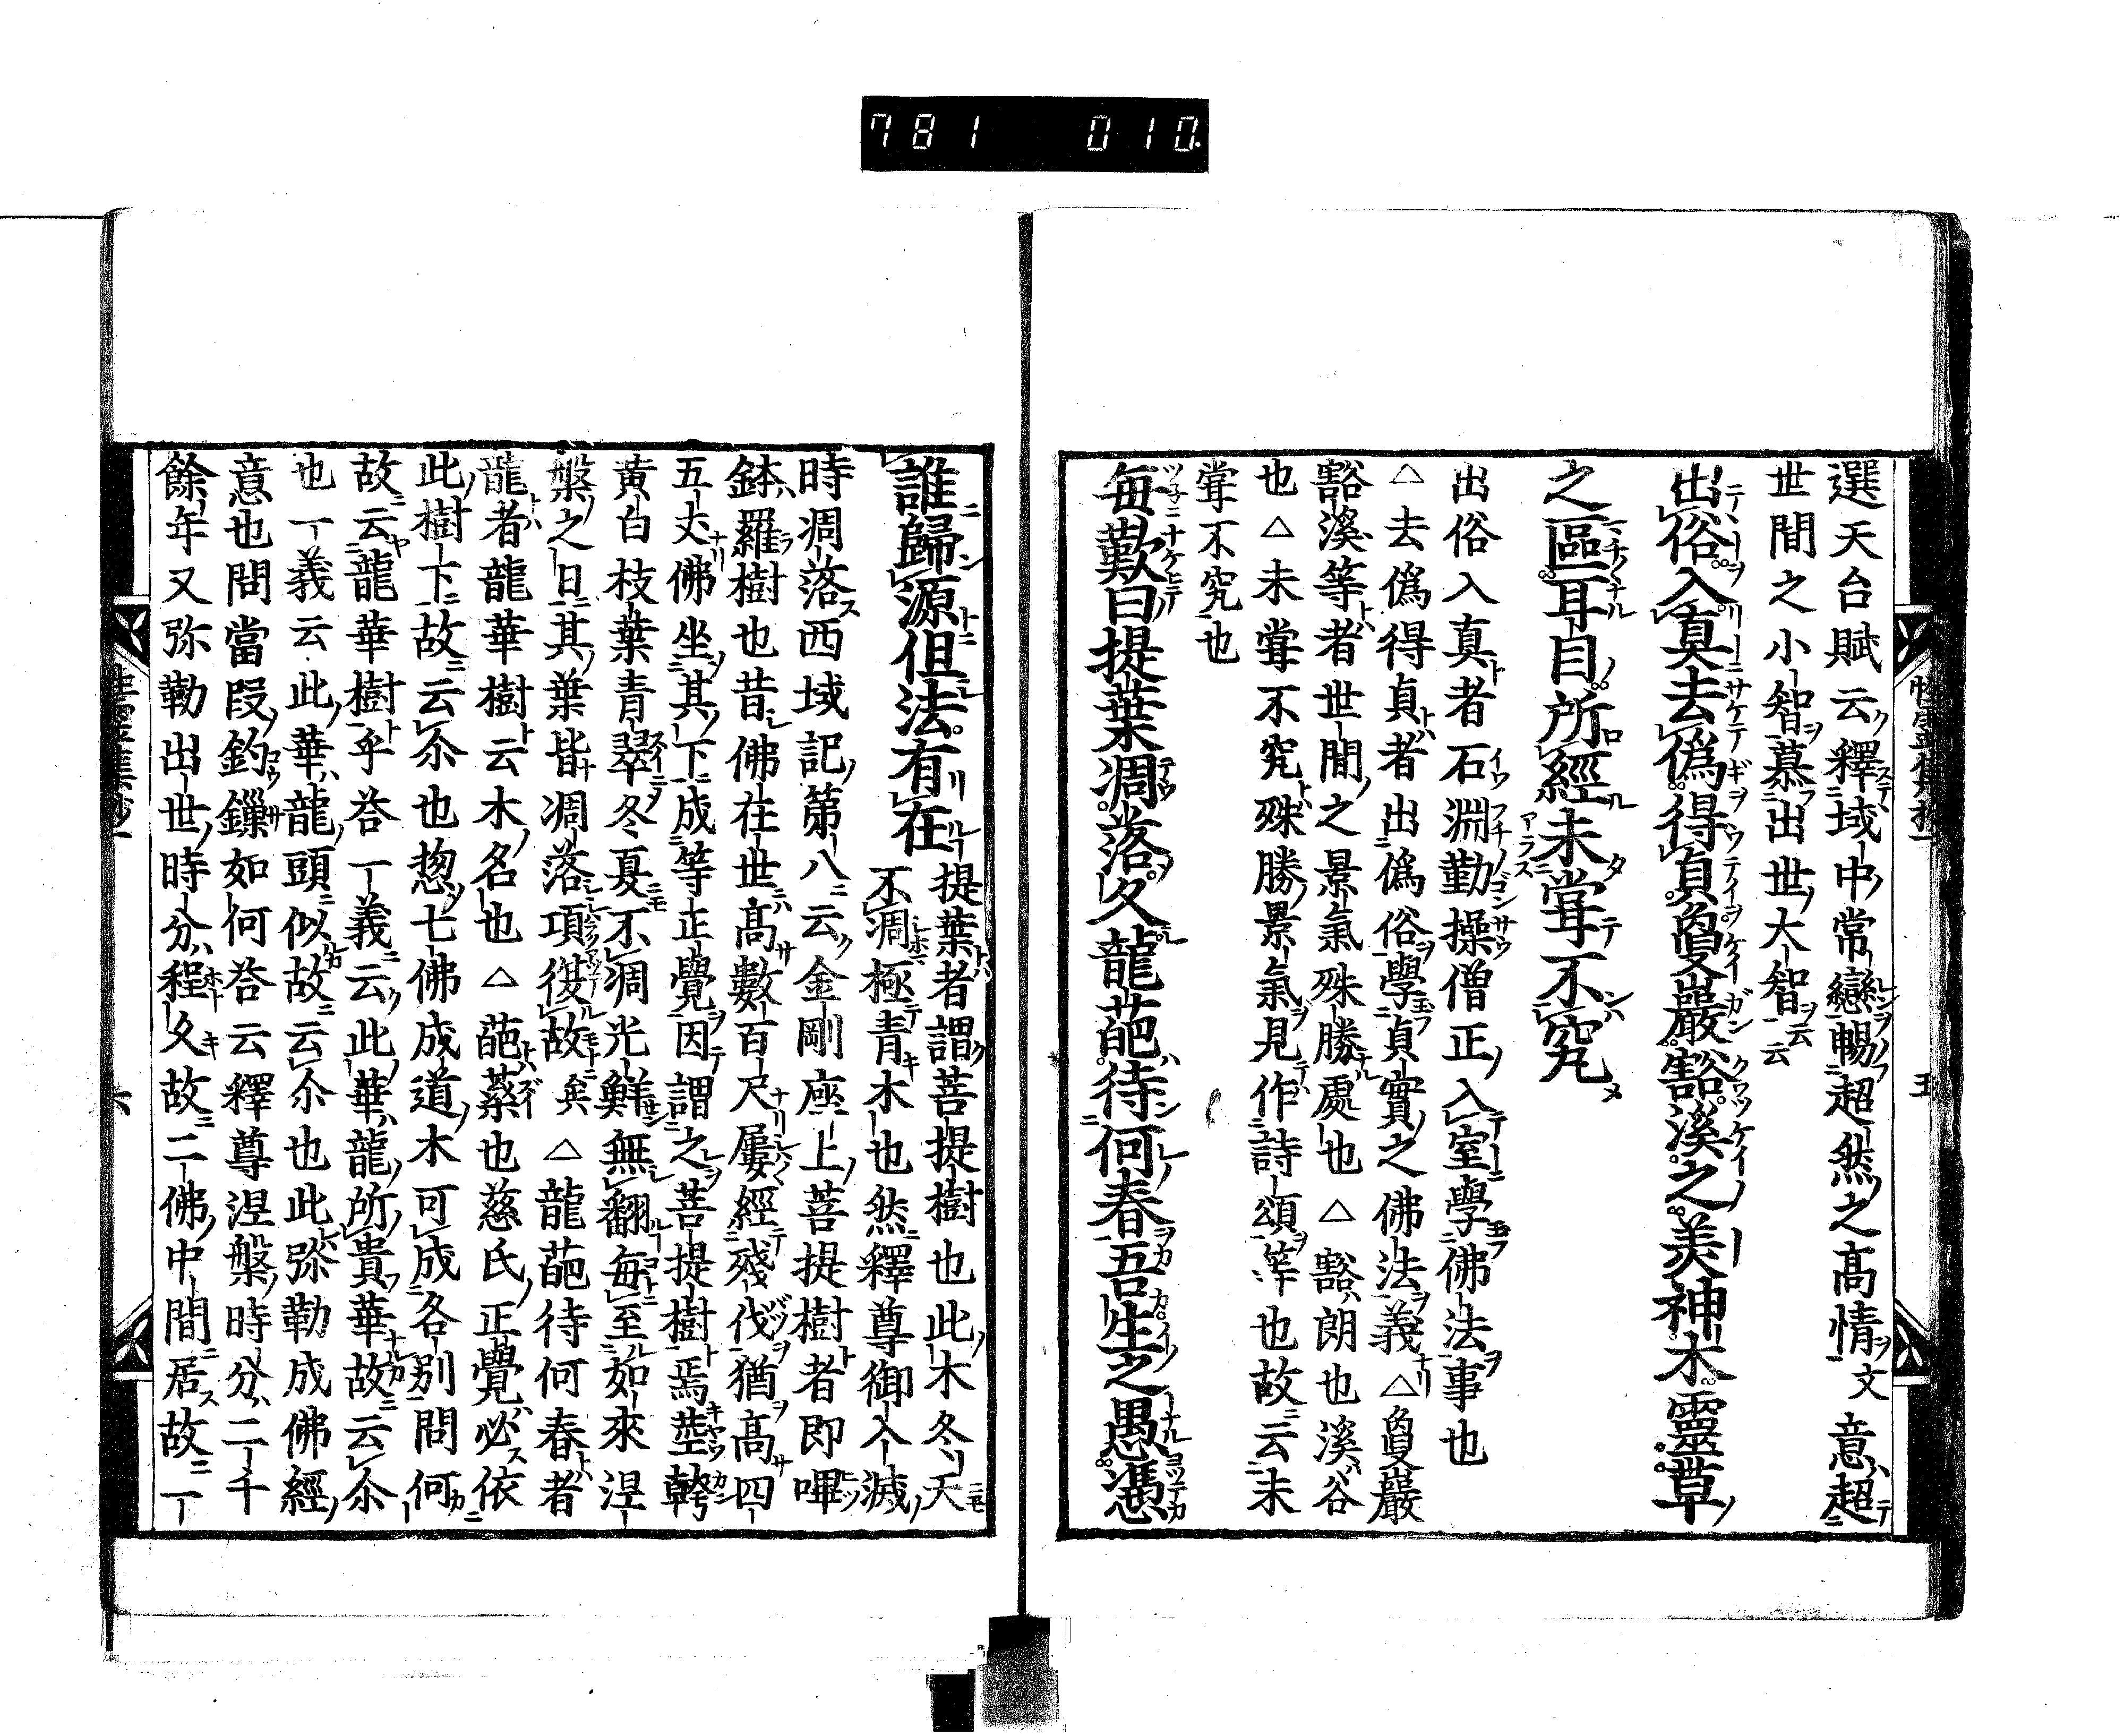 781 010
選天台賦云釋域中常戀暢超然之髙情文意超
世間之小智慕出世大智云云
出俗入真去偽得貞負嚴豁溪之美神木靈草
之區耳目所經未甞不究
出俗入真者石淵勤操僧正入室學佛法事也
△去偽得貞者出偽俗學貞實之佛法義△負巖
豁溪等者世間之景氣殊勝處也△豁朗也溪谷
也△未甞不究殊勝景氣見作詩頌等也故云未
甞不究也
每歎曰提葉凋落久龍葩待何春吾生之愚憑
誰歸源但法有在提葉者謂菩提樹也此木冬天
不凋極青木也然釋尊御入滅
時凋落西域記第八云金剛座上菩提樹者即畢
鉢羅樹也昔佛在世髙數百尺屢經殘伐猶髙四
五丈佛坐其下成等正覺因謂之菩提樹焉莖簳
黄白枝葉青翠冬夏不凋光鮮無翻每至如來涅
槃之日其葉皆凋落項復故矣△龍葩待何春者
龍者龍華樹云木名也△葩蘂也慈氏正覺必依
此樹下故云尒也惣七佛成道木可成各別問何
故云龍華樹乎荅一義云此華龍所貴華故云尒
也一義云此華龍頭似故云尒也此弥勒成佛經
意也問當段鈞鏁如何荅云釋尊涅槃時分二千
餘年又弥勒出世時分程久故二佛中間居故一